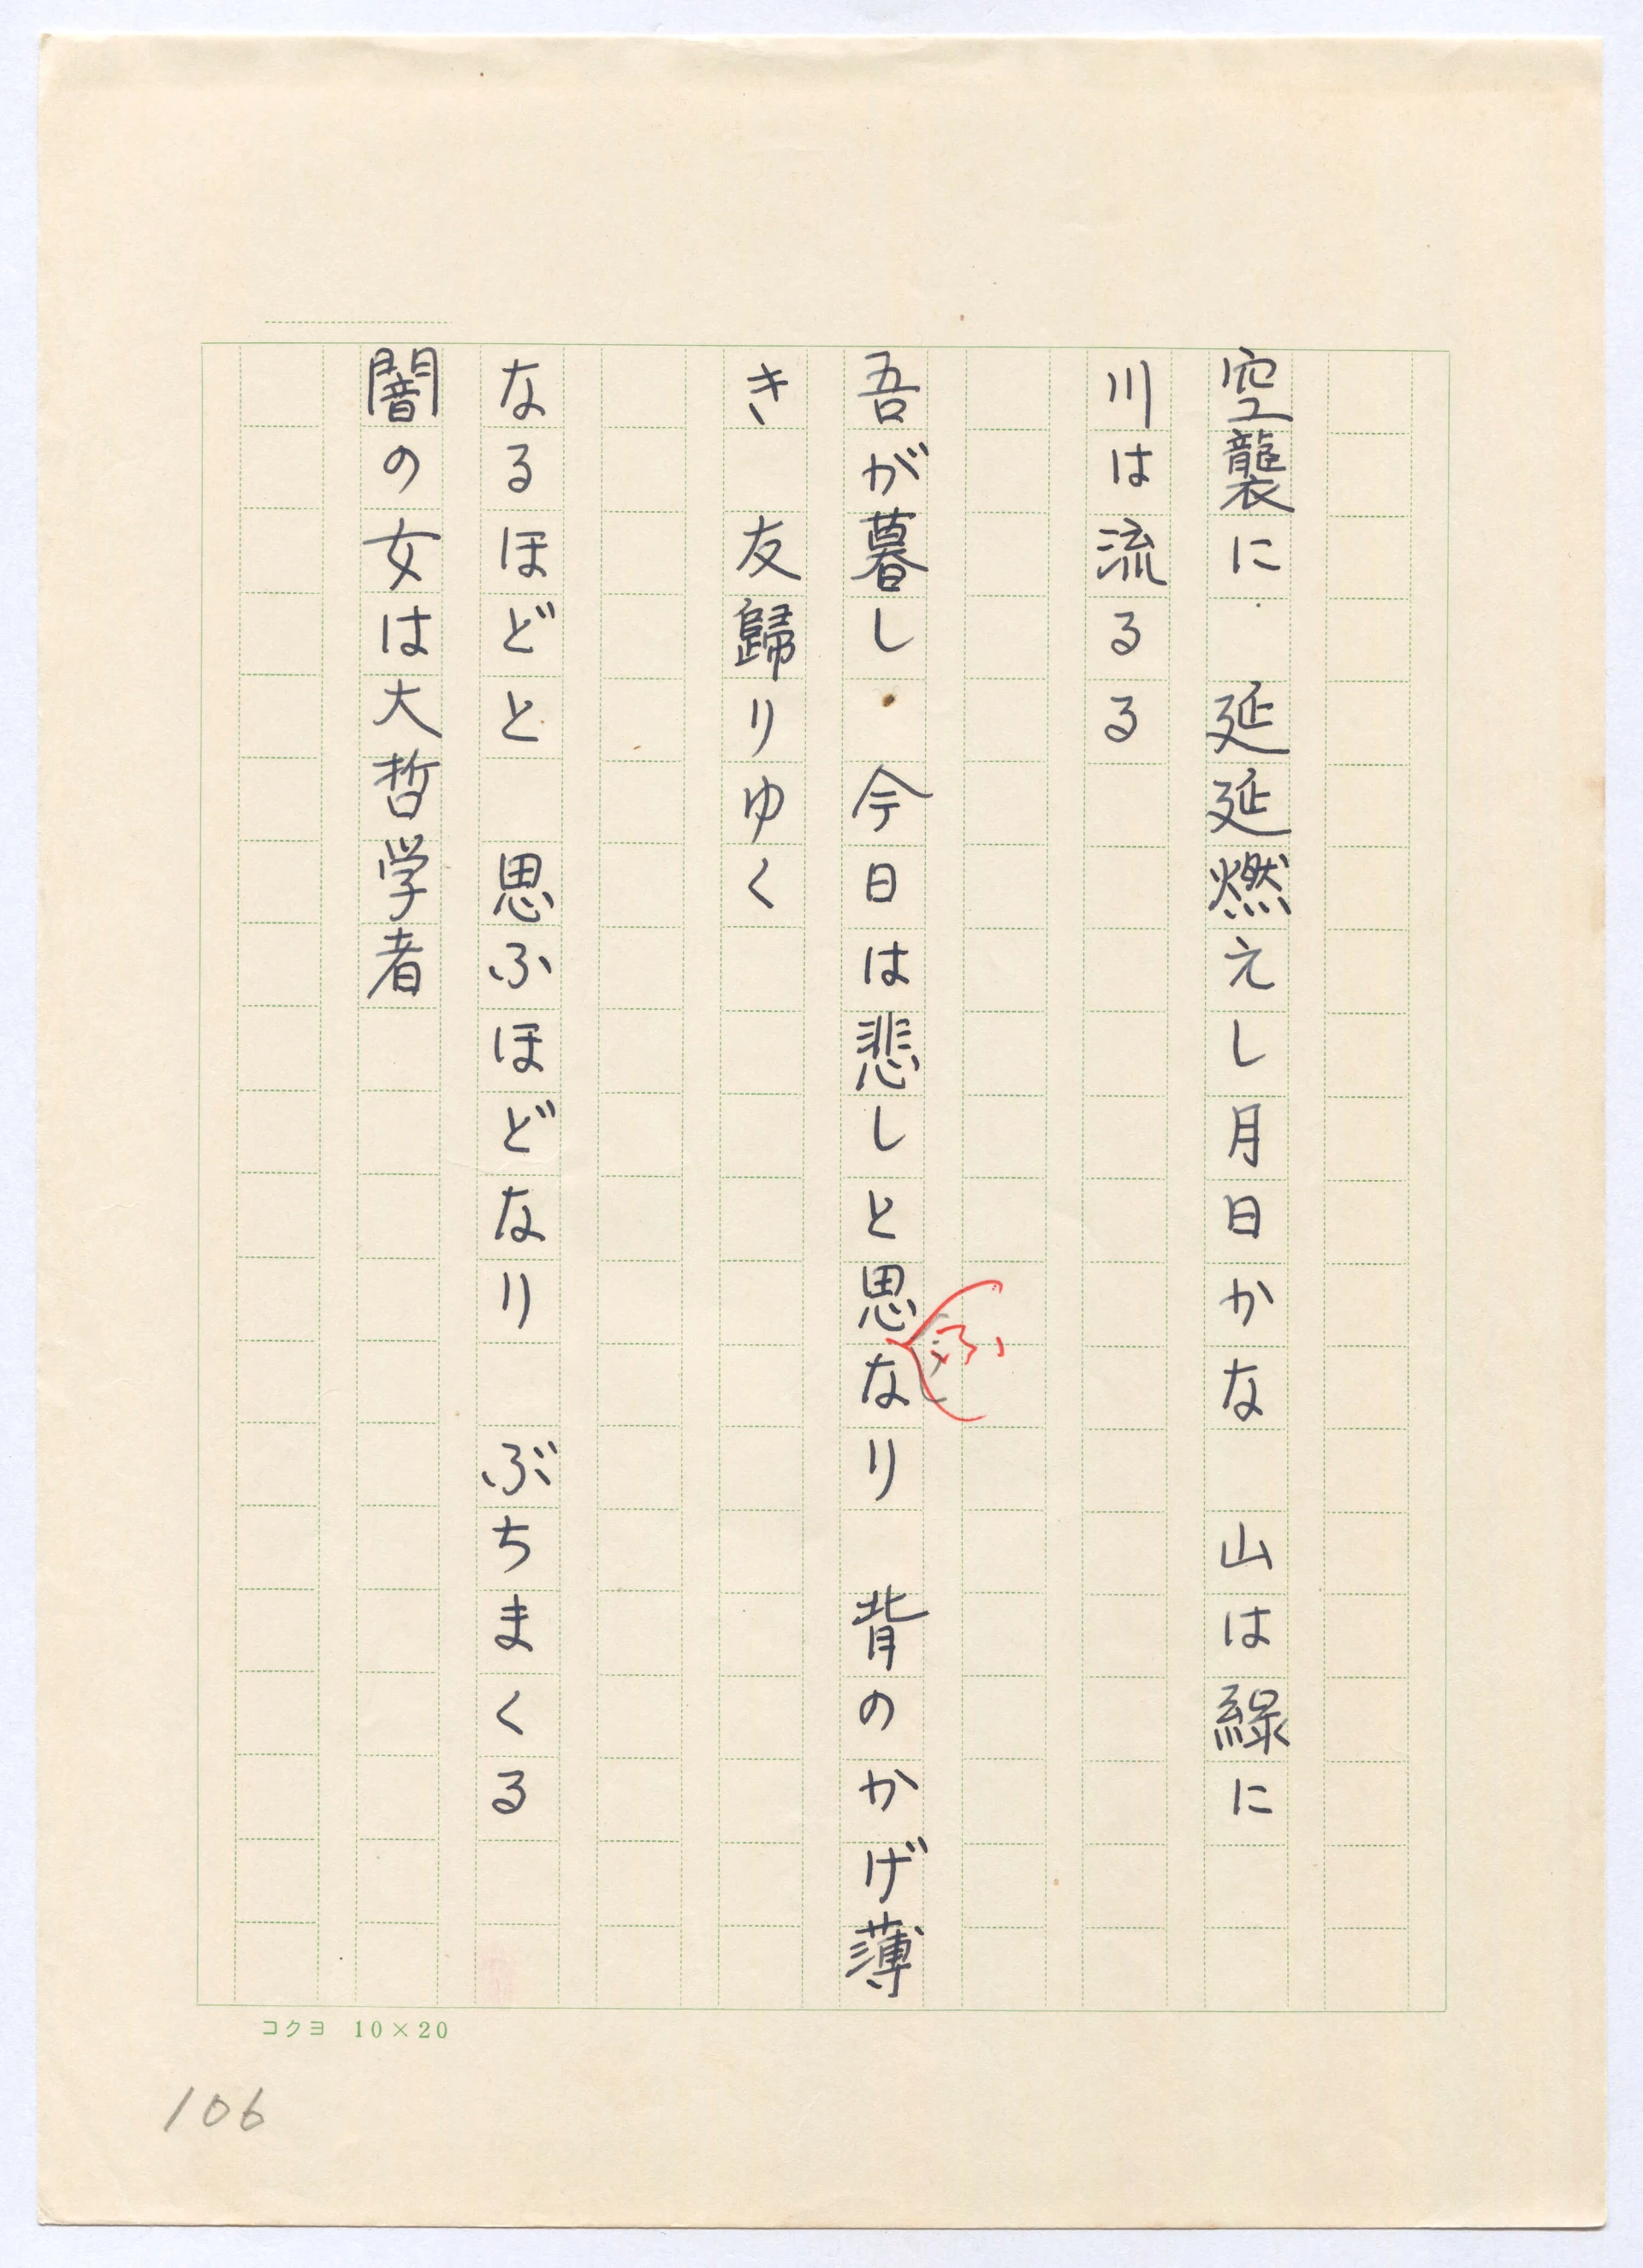 空襲に　延延燃えし月日かな　山は緑に
川は流るる
吾が暮し　今日は悲しと思なり　背のかげ薄
ふ
き　友歸りゆく
なるほどと　思ふほどなり　ぶちまくる
闇の女は大哲学者
コクヨ 10×20
106